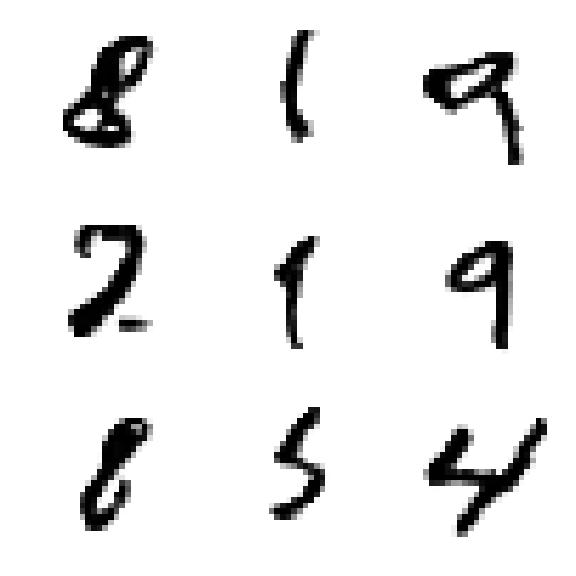 8 1 9
2 1 9
8 5 4